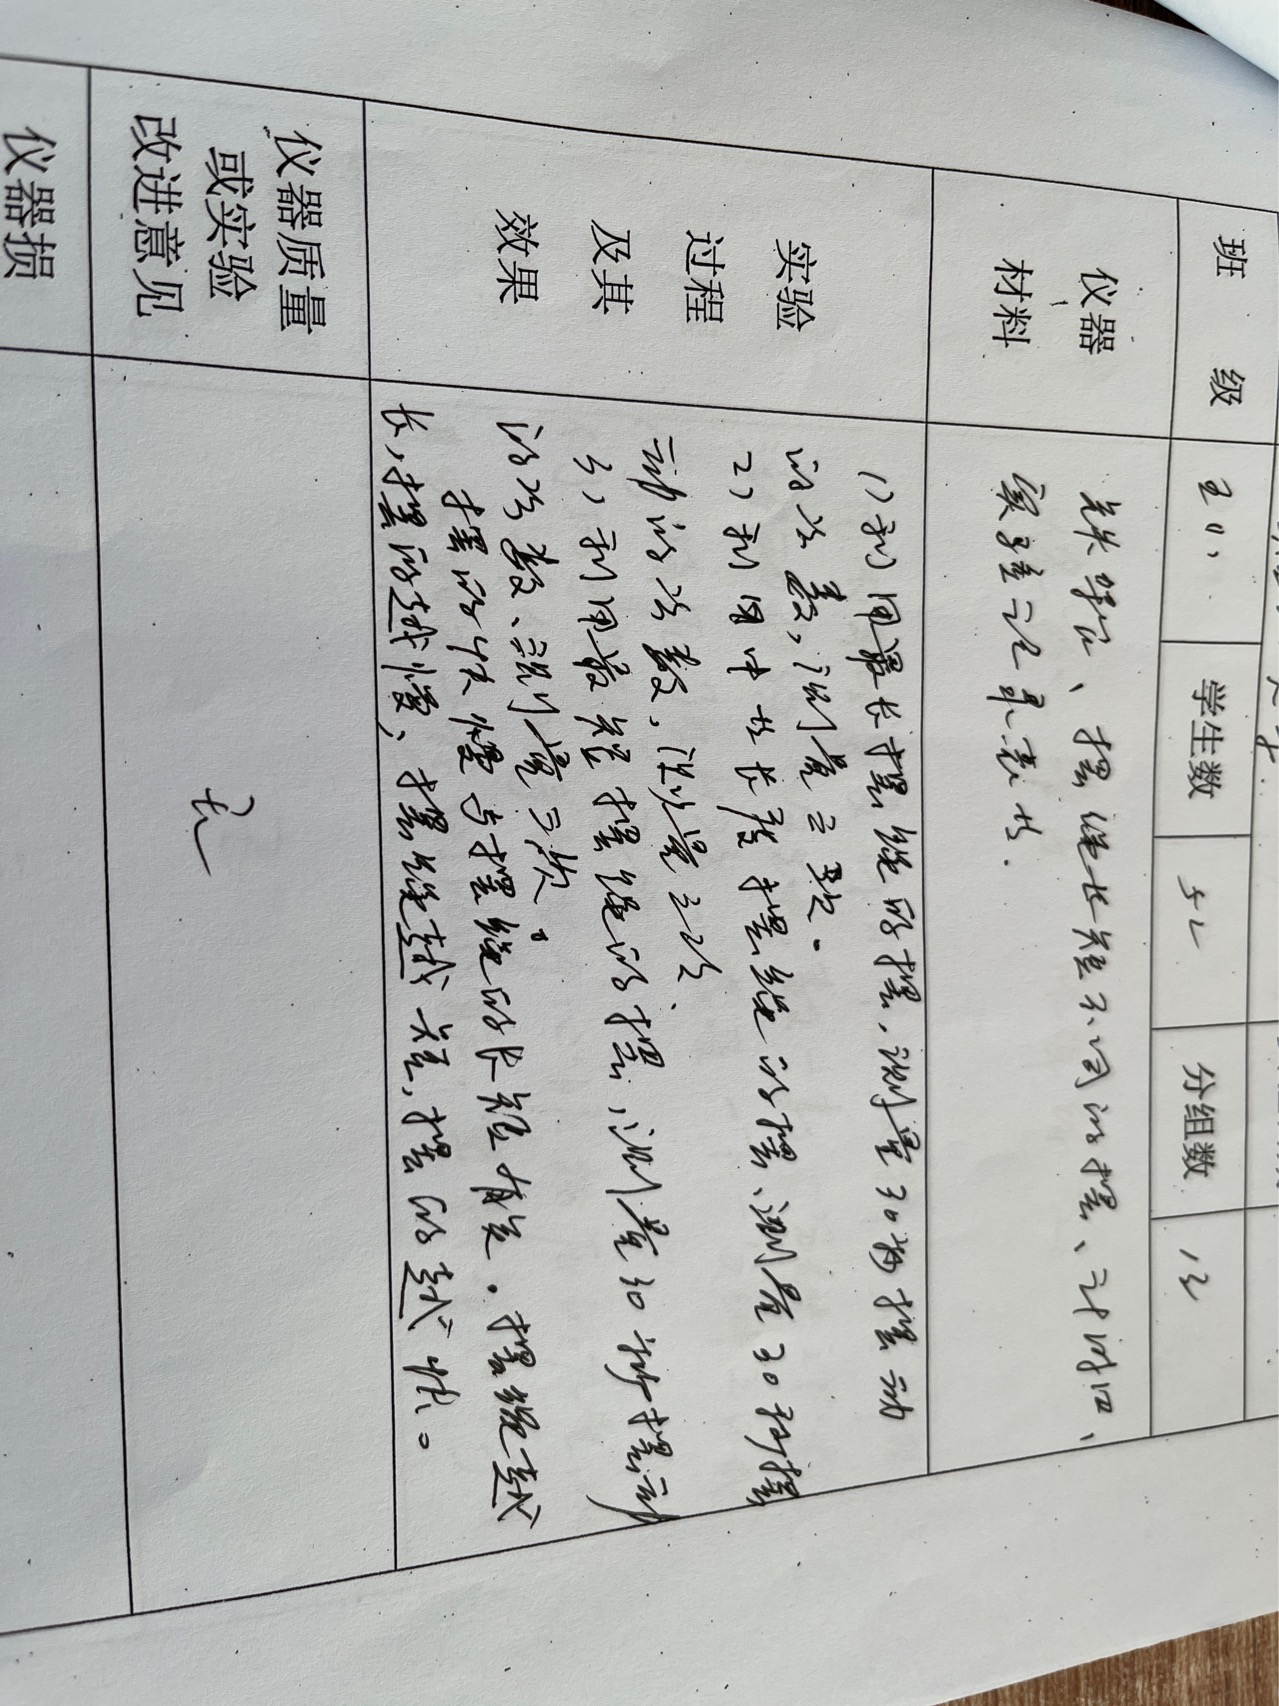 班 级 五(1) 学生数 52 分组数 12
仪器
材料
铁架台、摆绳长短不同的摆、计时器、
实验记录表等.
实验
过程
及其
效果
1)利用最长摆绳的摆,测量30秒摆动
的次数,测量三次.
2)利用中长度摆绳的摆、测量30秒摆
动的次数,测量三次、
3)利用最短摆绳的摆,测量30秒摆动
的次数、测量三次。
摆的快慢与摆绳的长短有关.摆绳越
长,摆的越慢、摆绳越短,摆的越快。
仪器质量
或实验
改进意见
无
仪器损